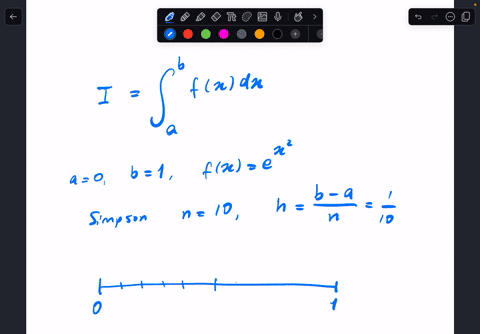 I = ∫_a^b f(x) dx
a=0, b=1, f(x)=e^{x^2}
Simpson n=10, h = \frac{b-a}{n} = \frac{1}{10}
0 1